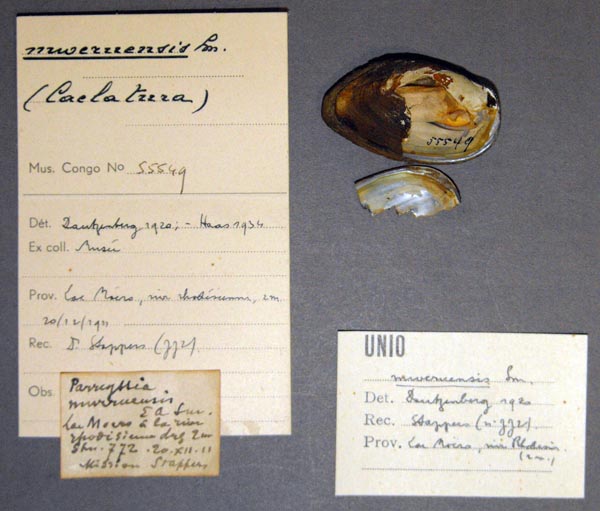 mweruensis Sm.
(Caelatura)
Mus. Congo No 55549
Dét. Dautzenberg 1920; - Haas 1934
Ex coll. Musée
Prov. Lac Moëro, rive rhodésienne, 2m.
20/12/1911
Rec. Dr Stappers (772)
Obs.
Parreyssia
mweruensis
E A Sm.
Lac Moero à la rive
rhodésienne 2m
Stn. 772. 20.XII.11
Mission Stappers
55549
UNIO
mweruensis Sm.
Det. Dautzenberg 1920
Rec. Stappers (n° 772)
Prov. Lac Moëro, rive Rhodesia
(2m.)